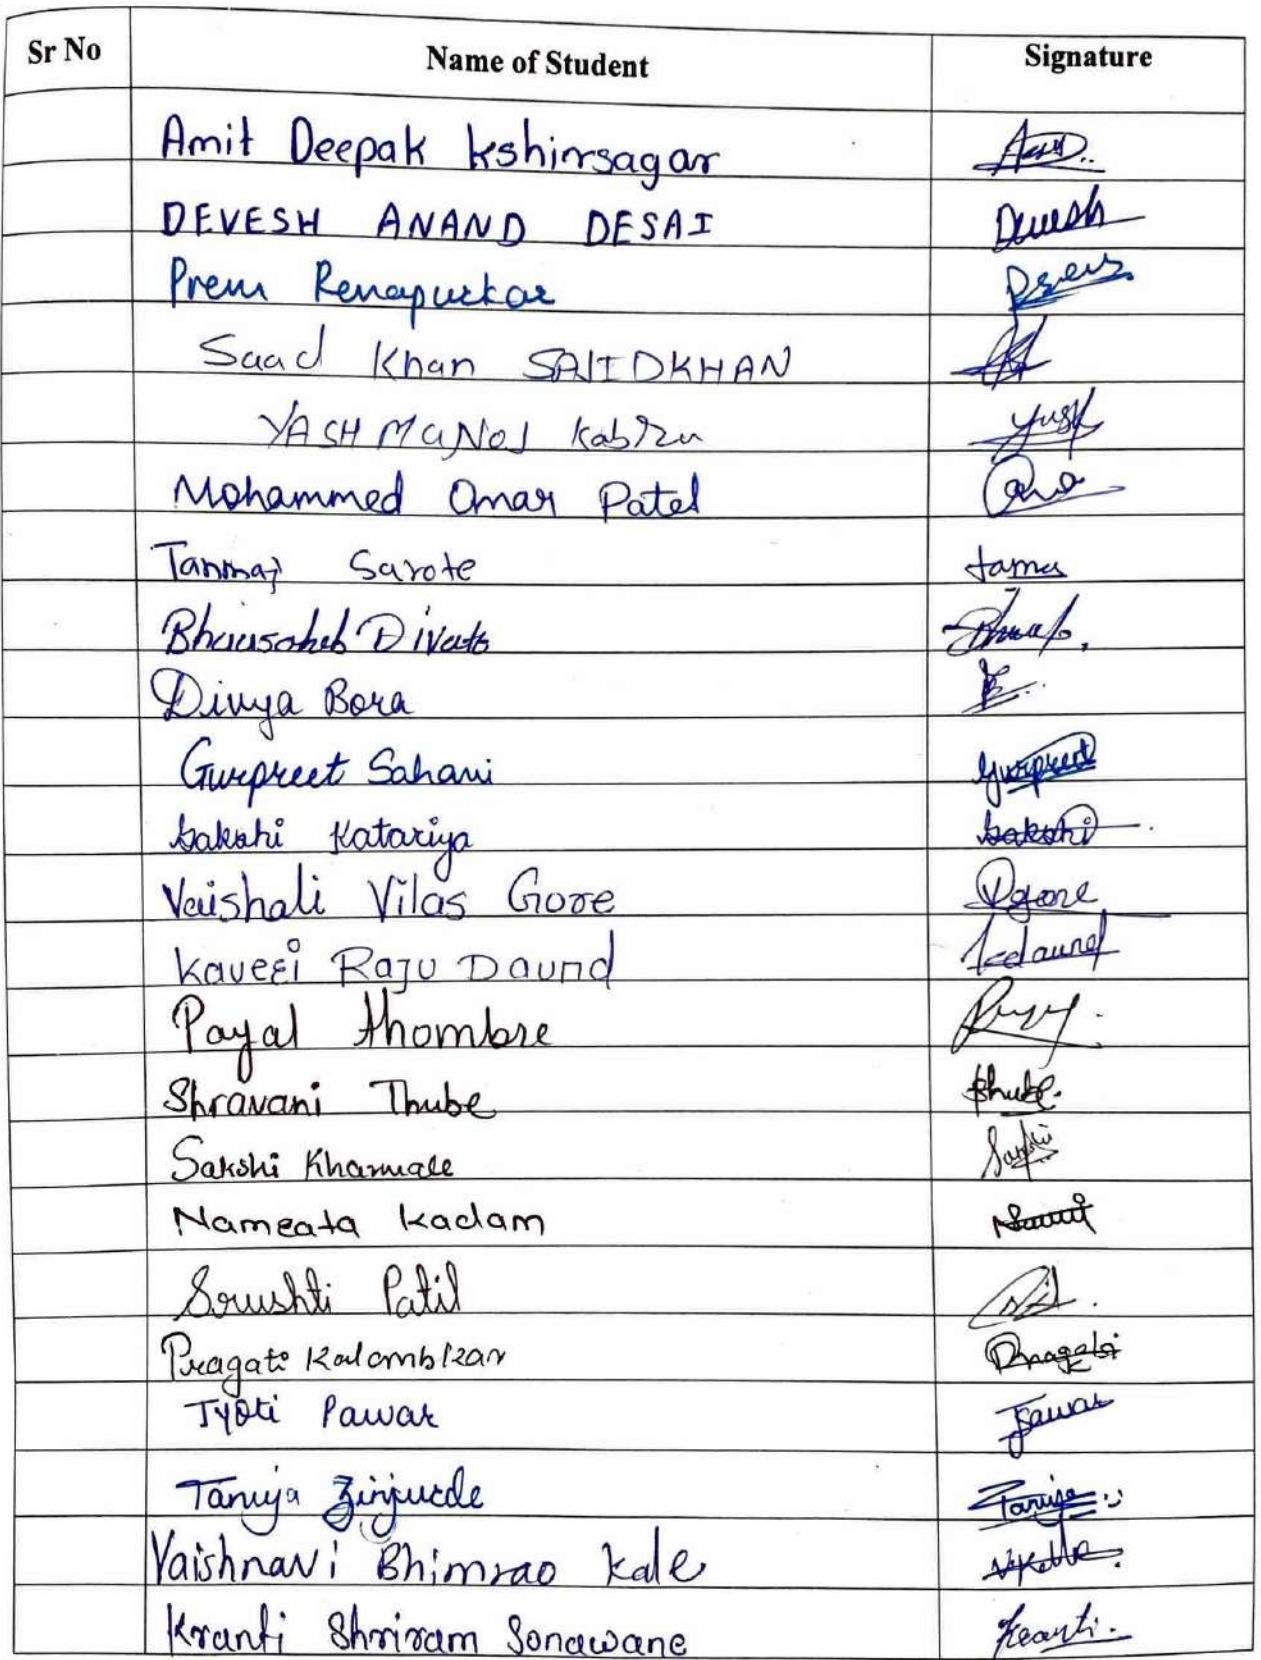 Sr No Name of Student Signature
Amit Deepak Kshirsagar
DEVESH ANAND DESAI Devesh
Prem Renapurkar Prem
Saad Khan SAIIDKHAN
YASH MANOJ Kabra Yash
Mohammed Omar Patel
Tanmay Sarote
Bhausaheb Divate
Divya Bora
Gurpreet Sahani Gurpreet
Sakshi Katariya Sakshi
Vaishali Vilas Gore Vgore
Kaveri Raju Daund kdaund
Payal Thombre
Shravani Thube
Sakshi Khamale Sakshi
Namrata Kadam
Srushti Patil
Pragati Kalambkar Pragati
Jyoti Pawar JPawar
Tanuja Zinjurde Tanuja
Vaishnavi Bhimrao Kale
Kranti Shriram Sonawane Kranti